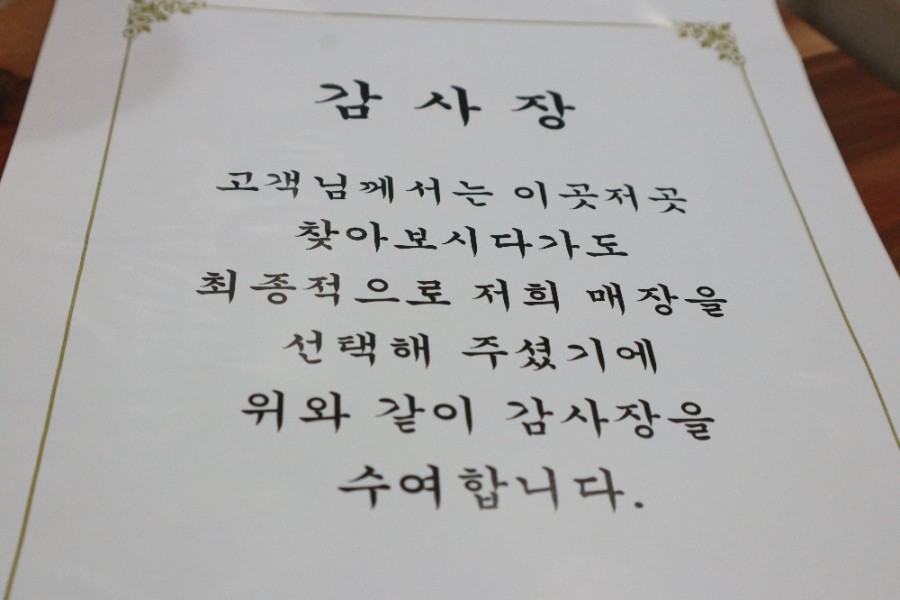 감 사 장
고객님께서는 이곳저곳
찾아보시다가도
최종적으로 저희 매장을
선택해 주셨기에
위와 같이 감사장을
수여합니다.